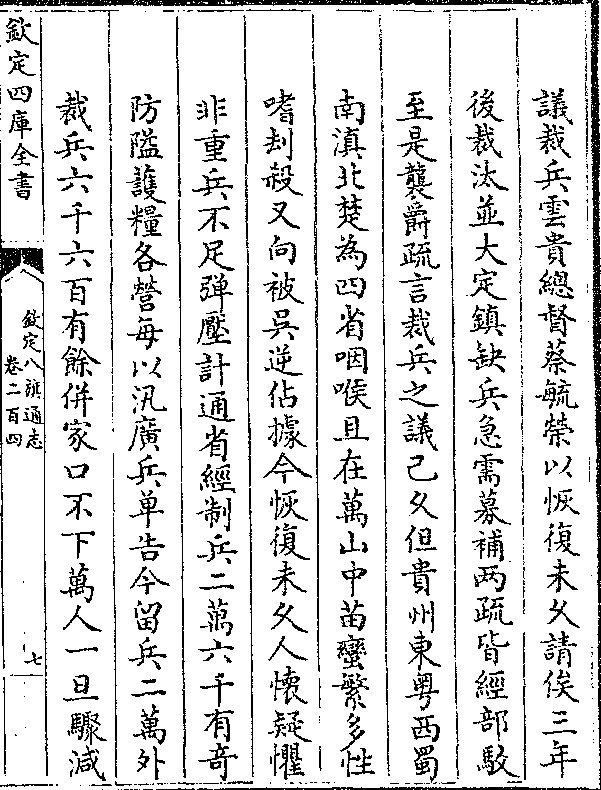 議裁兵雲貴總督蔡毓榮以恢復未乆請俟三年
後裁汰並大定鎮缺兵急需募補两疏皆經部駮
至是襲爵疏言裁兵之議已乆但貴州東粤西蜀
南滇北楚為四省咽喉且在萬山中苗蠻繁多性
嗜刦殺又向被吳逆佔據今恢復未乆人懷疑懼
非重兵不足弹壓計通省經制兵二萬六千有竒
防隘護糧各營毎以汛廣兵单告今留兵二萬外
裁兵六千六百有餘併家口不下萬人一旦驟減
欽定四庫全書
欽定八旗通志
卷二百四
七